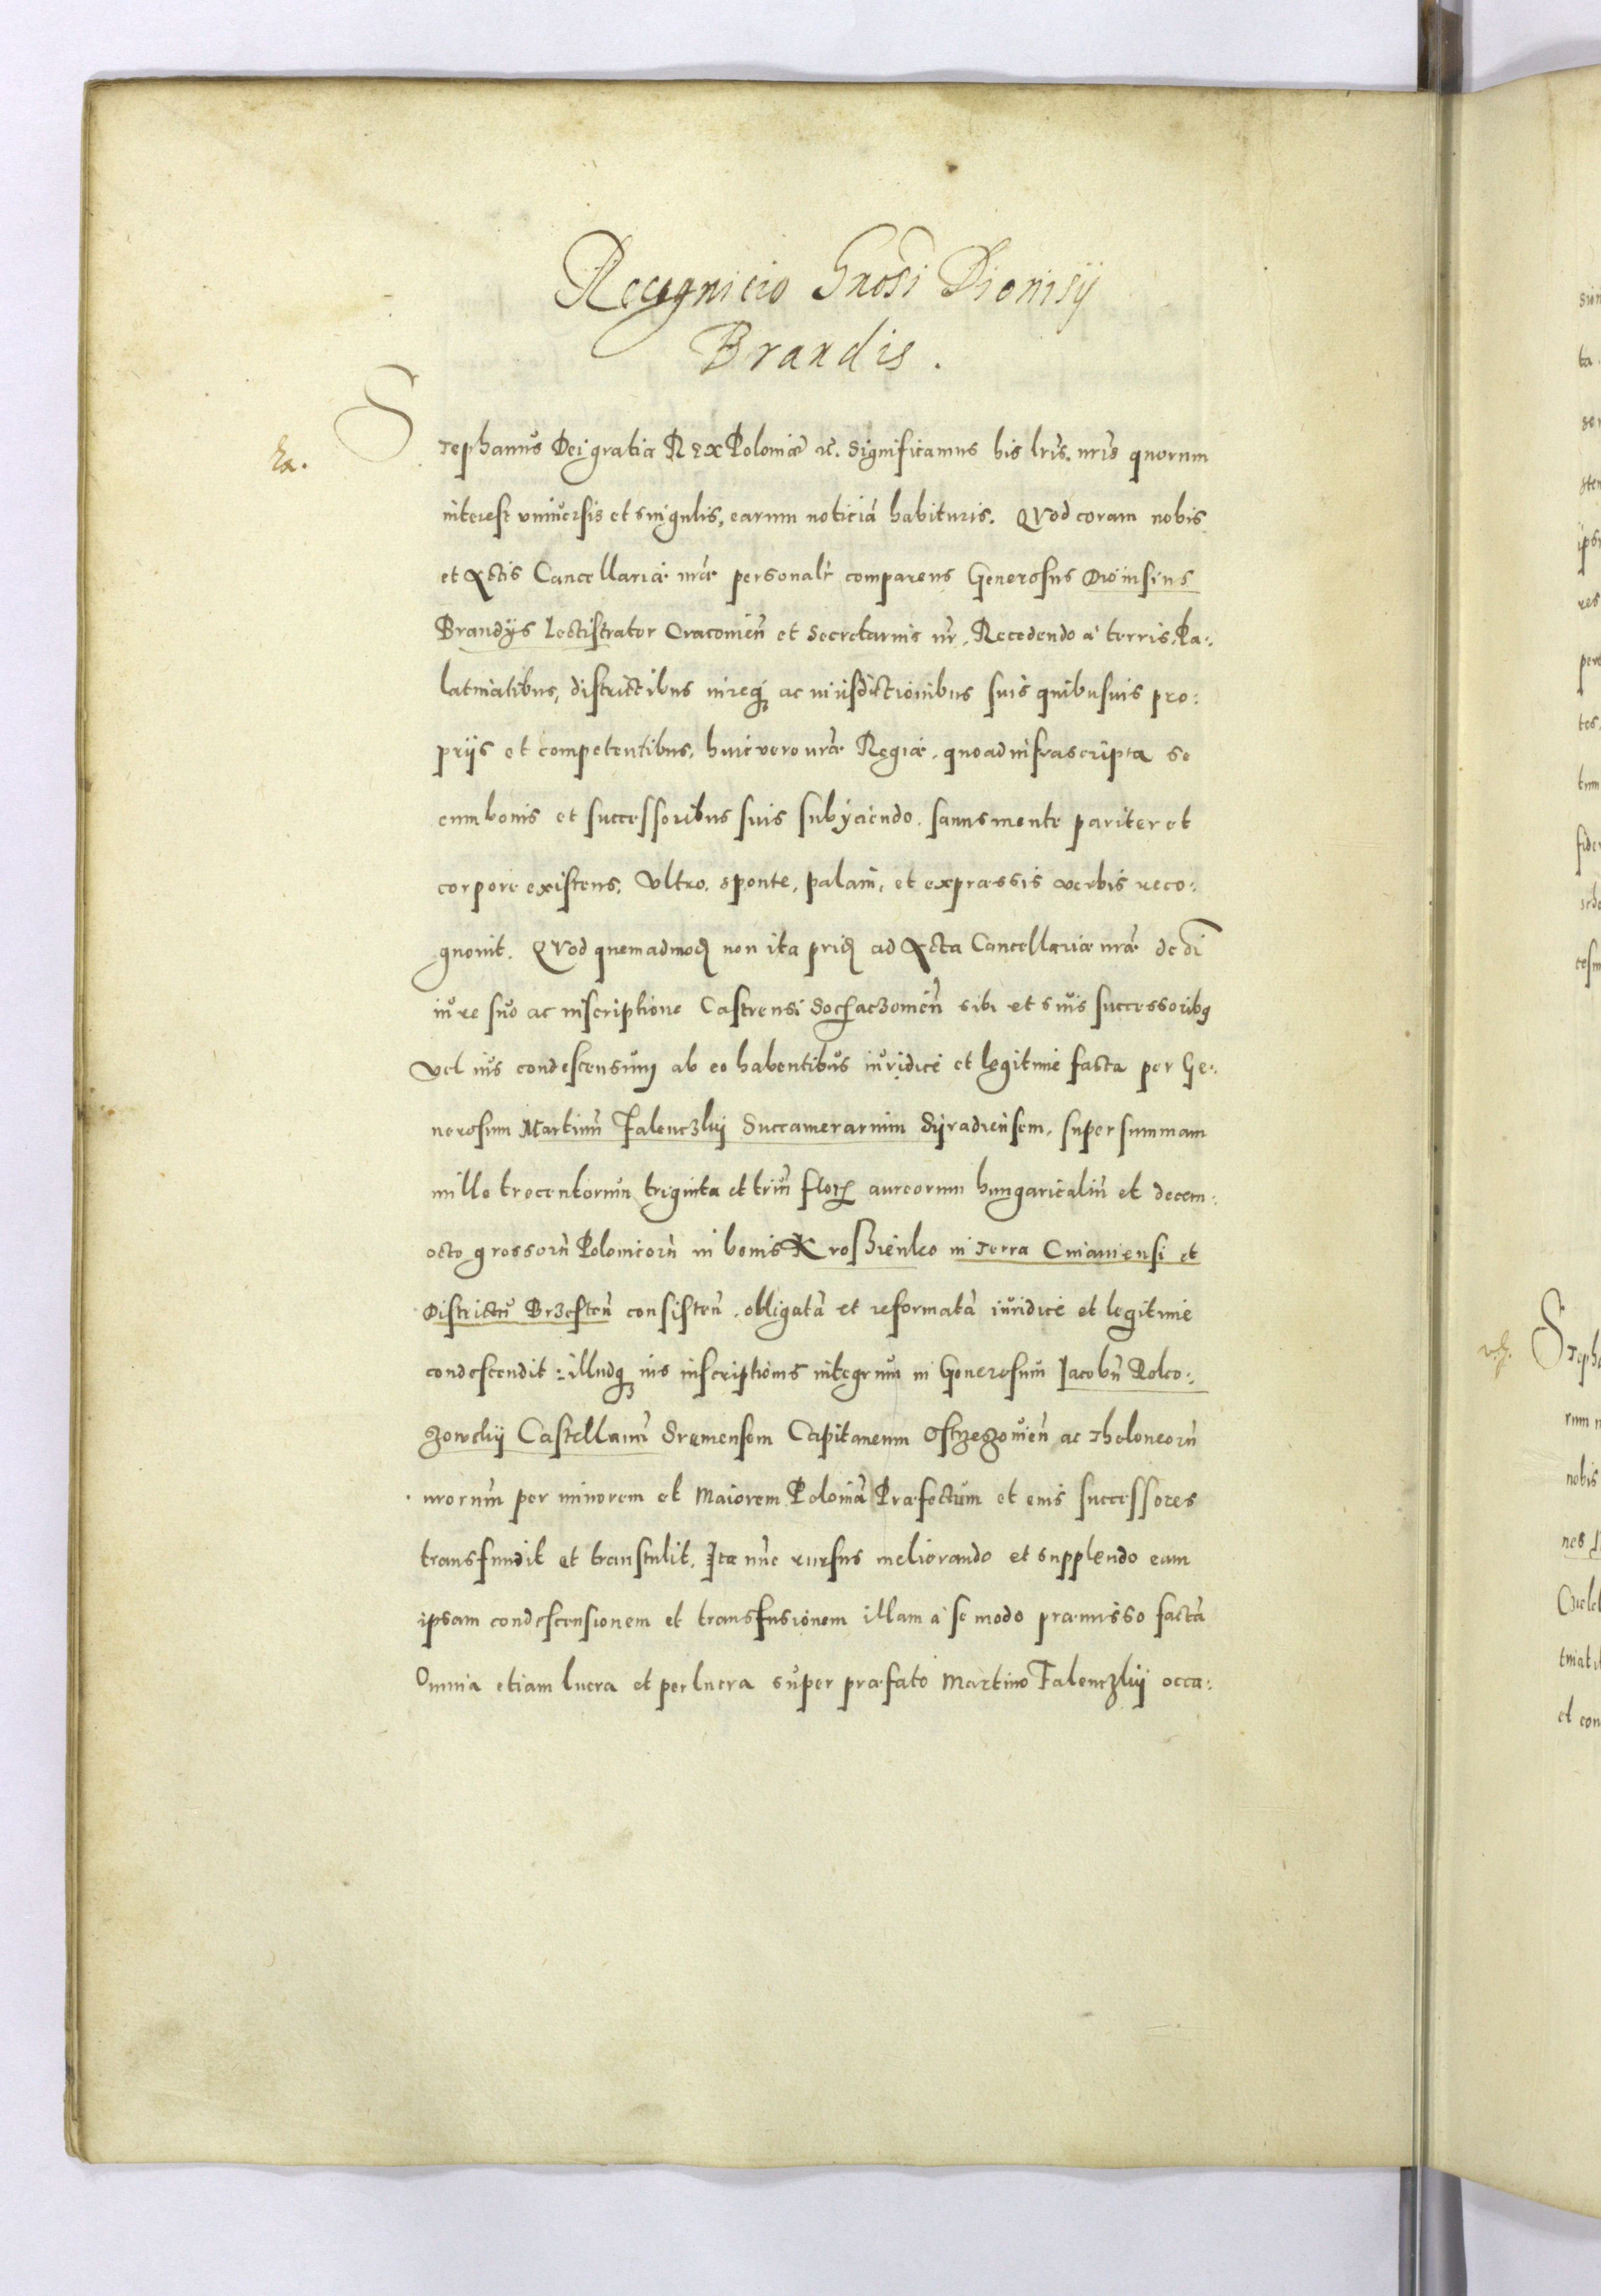 Recognicio Gnosi Dionisij
Brandis.
Stephanus Dei gratia Rex Poloniæ &c. Significamus his lris. nris quorum
interest vniuersis et singulis, earum noticiã habituris. Quod coram nobis
et Actis Cancellariæ nræ personalr comparens Generosus Dionisius
Brandÿs Lectistrator Cracomien̄ et Secretarius nr. Recedendo à terris, Pa:
latinatibus, districtibus iureq₃ ac iurisdictionibus suis quibusuis pro:
prijs et competentibus, huic vero nræ Regiæ, quoad infrascripta se
cum bonis et successoribus suis subijciendo, sanus mente pariter et
corpore existens, Vltro, sponte, palam, et expressis verbis reco:
gnouit. Quod quemadmod̄ non ita prid̄ ad Acta Cancellariæ nræ de oī
iure suo ac inscriptione Castrensi Sochaczouien̄ sibi et suis successoribꝫ
vel ius condescensum ab eo habentibus iuridicè et legitime facta per Ge:
nerosum Martinū Zalenczkij Succamerarium Syradiensem, super summam
mille trecentorum triginta et triū florꝝ aureorum hungaricaliū et decem
octo grossorū Polonicorū in bonis Krosnienko in Terra Cuiauiensi et
Districtu Brzesten̄ consisten̄. obligatã et reformatã iuridicè et legitime
condescendit: illudq₃ ius inscriptionis integrum in Generosum Jacobū Roko:
zowskij Castellanū Sremensem Capitaneum Ostrzeszouien̄ ac Theloneorū
nrorum per minorem et Maiorem Poloniã Præfectum et eius successores
transfundit et transtulit. Ita nūc rursus meliorando et supplendo eam
ipsam condescensionem et transfusionem illam à se modo præmisso factã
Omnia etiam lucra et perlucra super præfato Martino Zalenczkij occa: